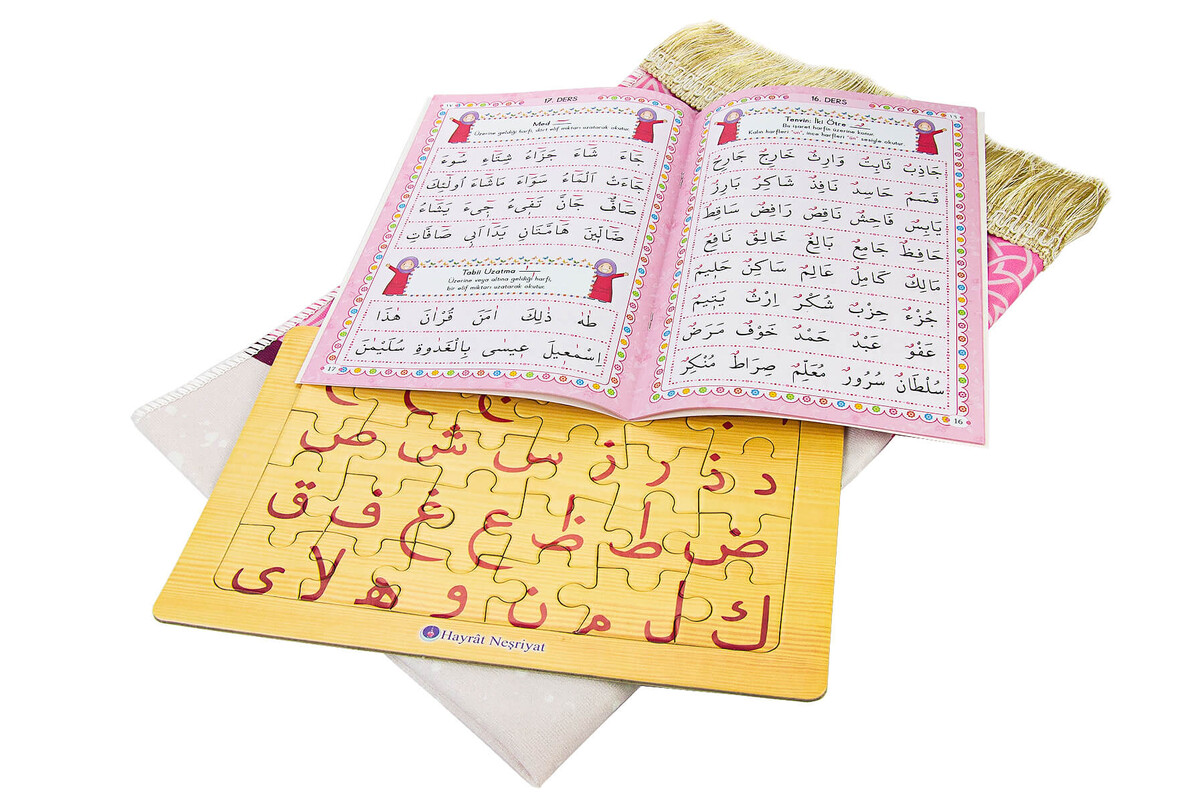 16. DERS
Tenvin: İki Ötre ـٌـ
Bu işaret harfin üzerine konur.
Kalın harfleri "un", ince harfleri "ün" sesiyle okutur.
جَاذِبٌ ثَابِتٌ وَارِثٌ خَارِجٌ جَارِحٌ
قَسَمٌ حَاسِدٌ نَافِذٌ شَاكِرٌ بَارِزٌ
يَابِسٌ فَاحِشٌ نَاقِصٌ رَافِضٌ سَاقِطٌ
حَافِظٌ جَامِعٌ بَالِغٌ خَالِقٌ نَافِعٌ
مَالِكٌ كَامِلٌ عَالِمٌ سَاكِنٌ حَلِيمٌ
جُزْءٌ حِزْبٌ شُكْرٌ اِرْثٌ يَتِيمٌ
عَفْوٌ عَبْدٌ حَمْدٌ خَوْفٌ مَرَضٌ
سُلْطَانٌ سُرُورٌ مُعَلِّمٌ صِرَاطٌ مُنْكِرٌ
16
17. DERS
Med ـٓـ
Üzerine geldiği harfi, dört elif miktarı uzatarak okutur.
جَٓاءَ شَٓاءَ جَزَٓاءُ شِتَٓاءِ سُٓوءَ
جَٓاءَتْ اَلْمَٓاءُ سَوَٓاءَ مَاشَٓاءَ اُولٰٓئِكَ
صَٓافٌّ جَٓانَّ تَفِٓىءُ جِٓىءَ يَشَٓاءُ
ضَٓالّ۪ينَ هَٓامَّتَانِ يَدَٓا اَب۪ى صَٓافَّاتٍ
Tabii Uzatma
Üzerine veya altına geldiği harfi,
bir elif miktarı uzatarak okutur.
طٰهٰ ذٰلِكَ اٰمَنَ قُرْاٰنَ هٰذَا
اِسْمٰع۪يلَ ع۪يسٰى بِالْغَدٰوةِ سُلَيْمٰنَ
17
د ذ ر ز س ش ص
ض ط ظ ع غ ف ق
ك ل م ن و ه لا ى
Hayrât Neşriyat